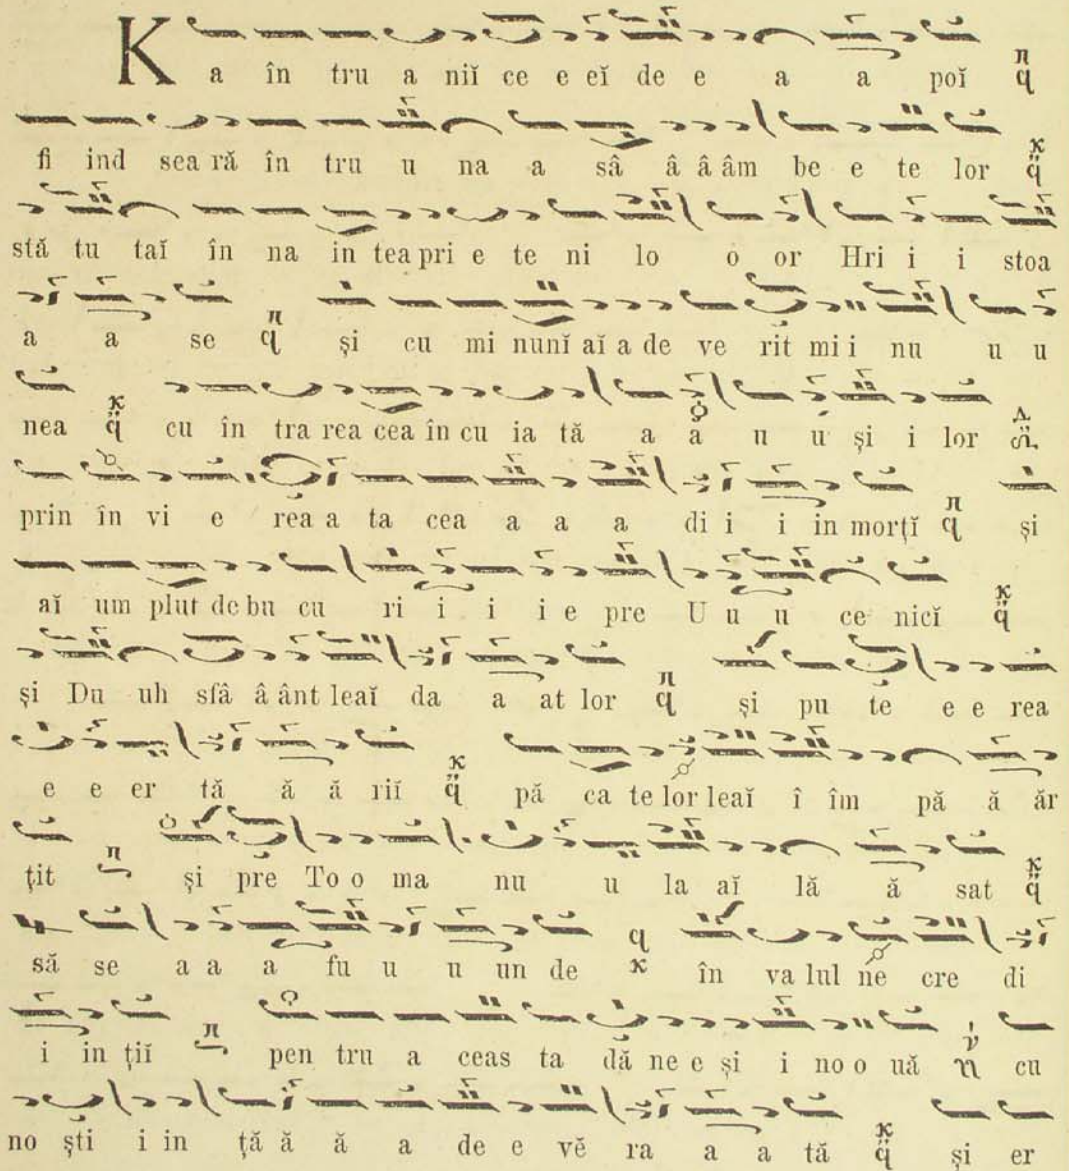 K a în tru a niĭ ce e eĭ de e a a poĭ
fi ind sea ră în tru u na a sâ â â âm be e te lor
stă tu taĭ în na in tea pri e te ni lo o or Hri i i stoa
a a se și cu mi nunĭ aĭ a de ve rit mi i nu u u
nea cu în tra rea cea în cu ia tă a a u u și i lor
prin în vi e rea a ta cea a a a di i i in morțĭ și
aĭ um plut de bu cu ri i i i e pre U u u ce nicĭ
și Du uh sfâ â ânt leaĭ da a at lor și pu te e e rea
e e er tă ă ă riĭ pă ca te lor leaĭ î îm pă ă ăr
țit și pre To o ma nu u la aĭ lă ă sat
să se a a a fu u u un de în va lul ne cre di
i in țiĭ pen tru a ceas ta dă ne e și i no o uă cu
no ști i in ță ă ă a de e vĕ ra a a tă și er